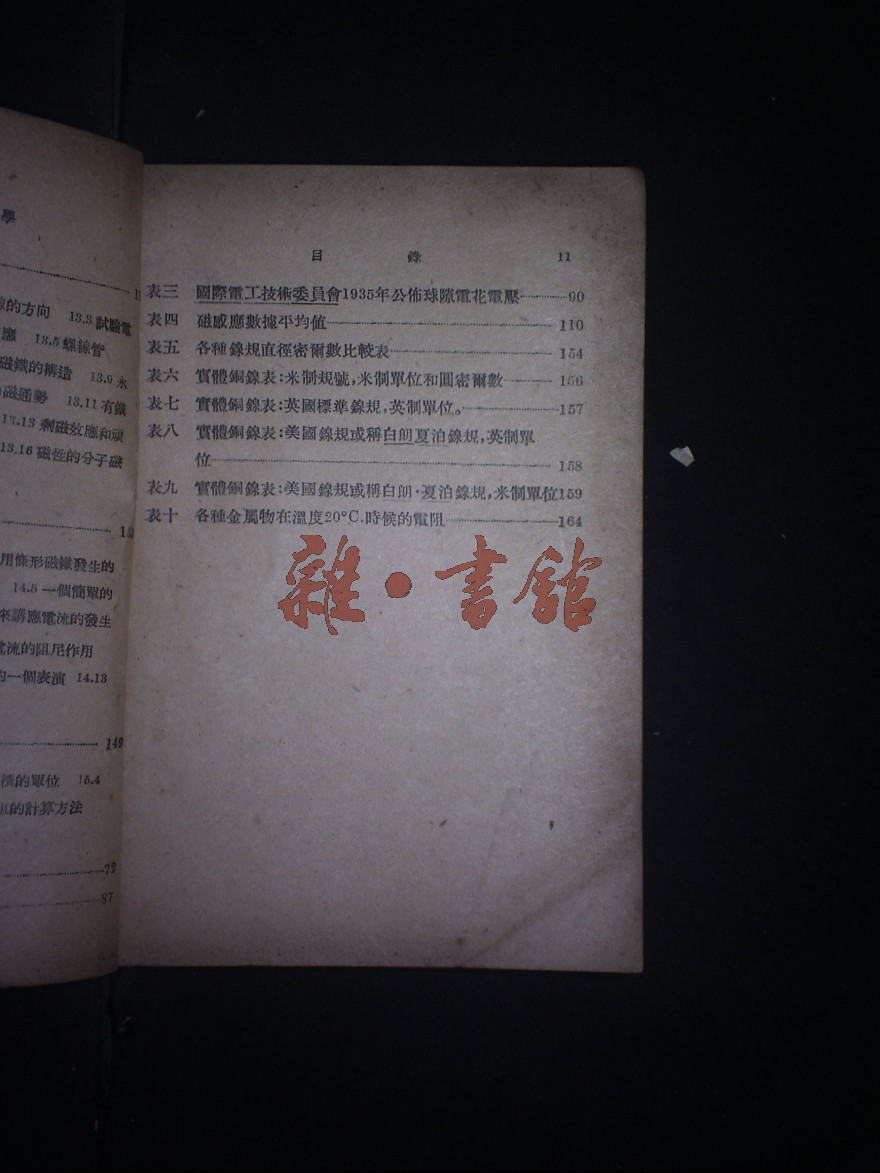 學
線的方向 13.3 試驗電
應 13.5 螺線管
磁鐵的構造 13.9 永
磁通勢 13.11 有鐵
13.13 剩磁效應和頑
13.16 磁性的分子磁
用條形磁鐵發生的
14.5 一個簡單的
來講應電流的發生
電流的阻尼作用
的一個表演 14.13
149
積的單位 15.4
的計算方法
72
87
目錄 11
表三 國際電工技術委員會1935年公佈球隙電花電壓 90
表四 磁感應數據平均值 110
表五 各種線規直徑密爾數比較表 154
表六 實體銅線表：米制規號，米制單位和圓密爾數 156
表七 實體銅線表：英國標準線規，英制單位。 157
表八 實體銅線表：美國線規或稱白朗夏泊線規，英制單
位 158
表九 實體銅線表：美國線規或稱白朗·夏泊線規，米制單位159
表十 各種金屬物在溫度20°C.時候的電阻 164
雜·書館